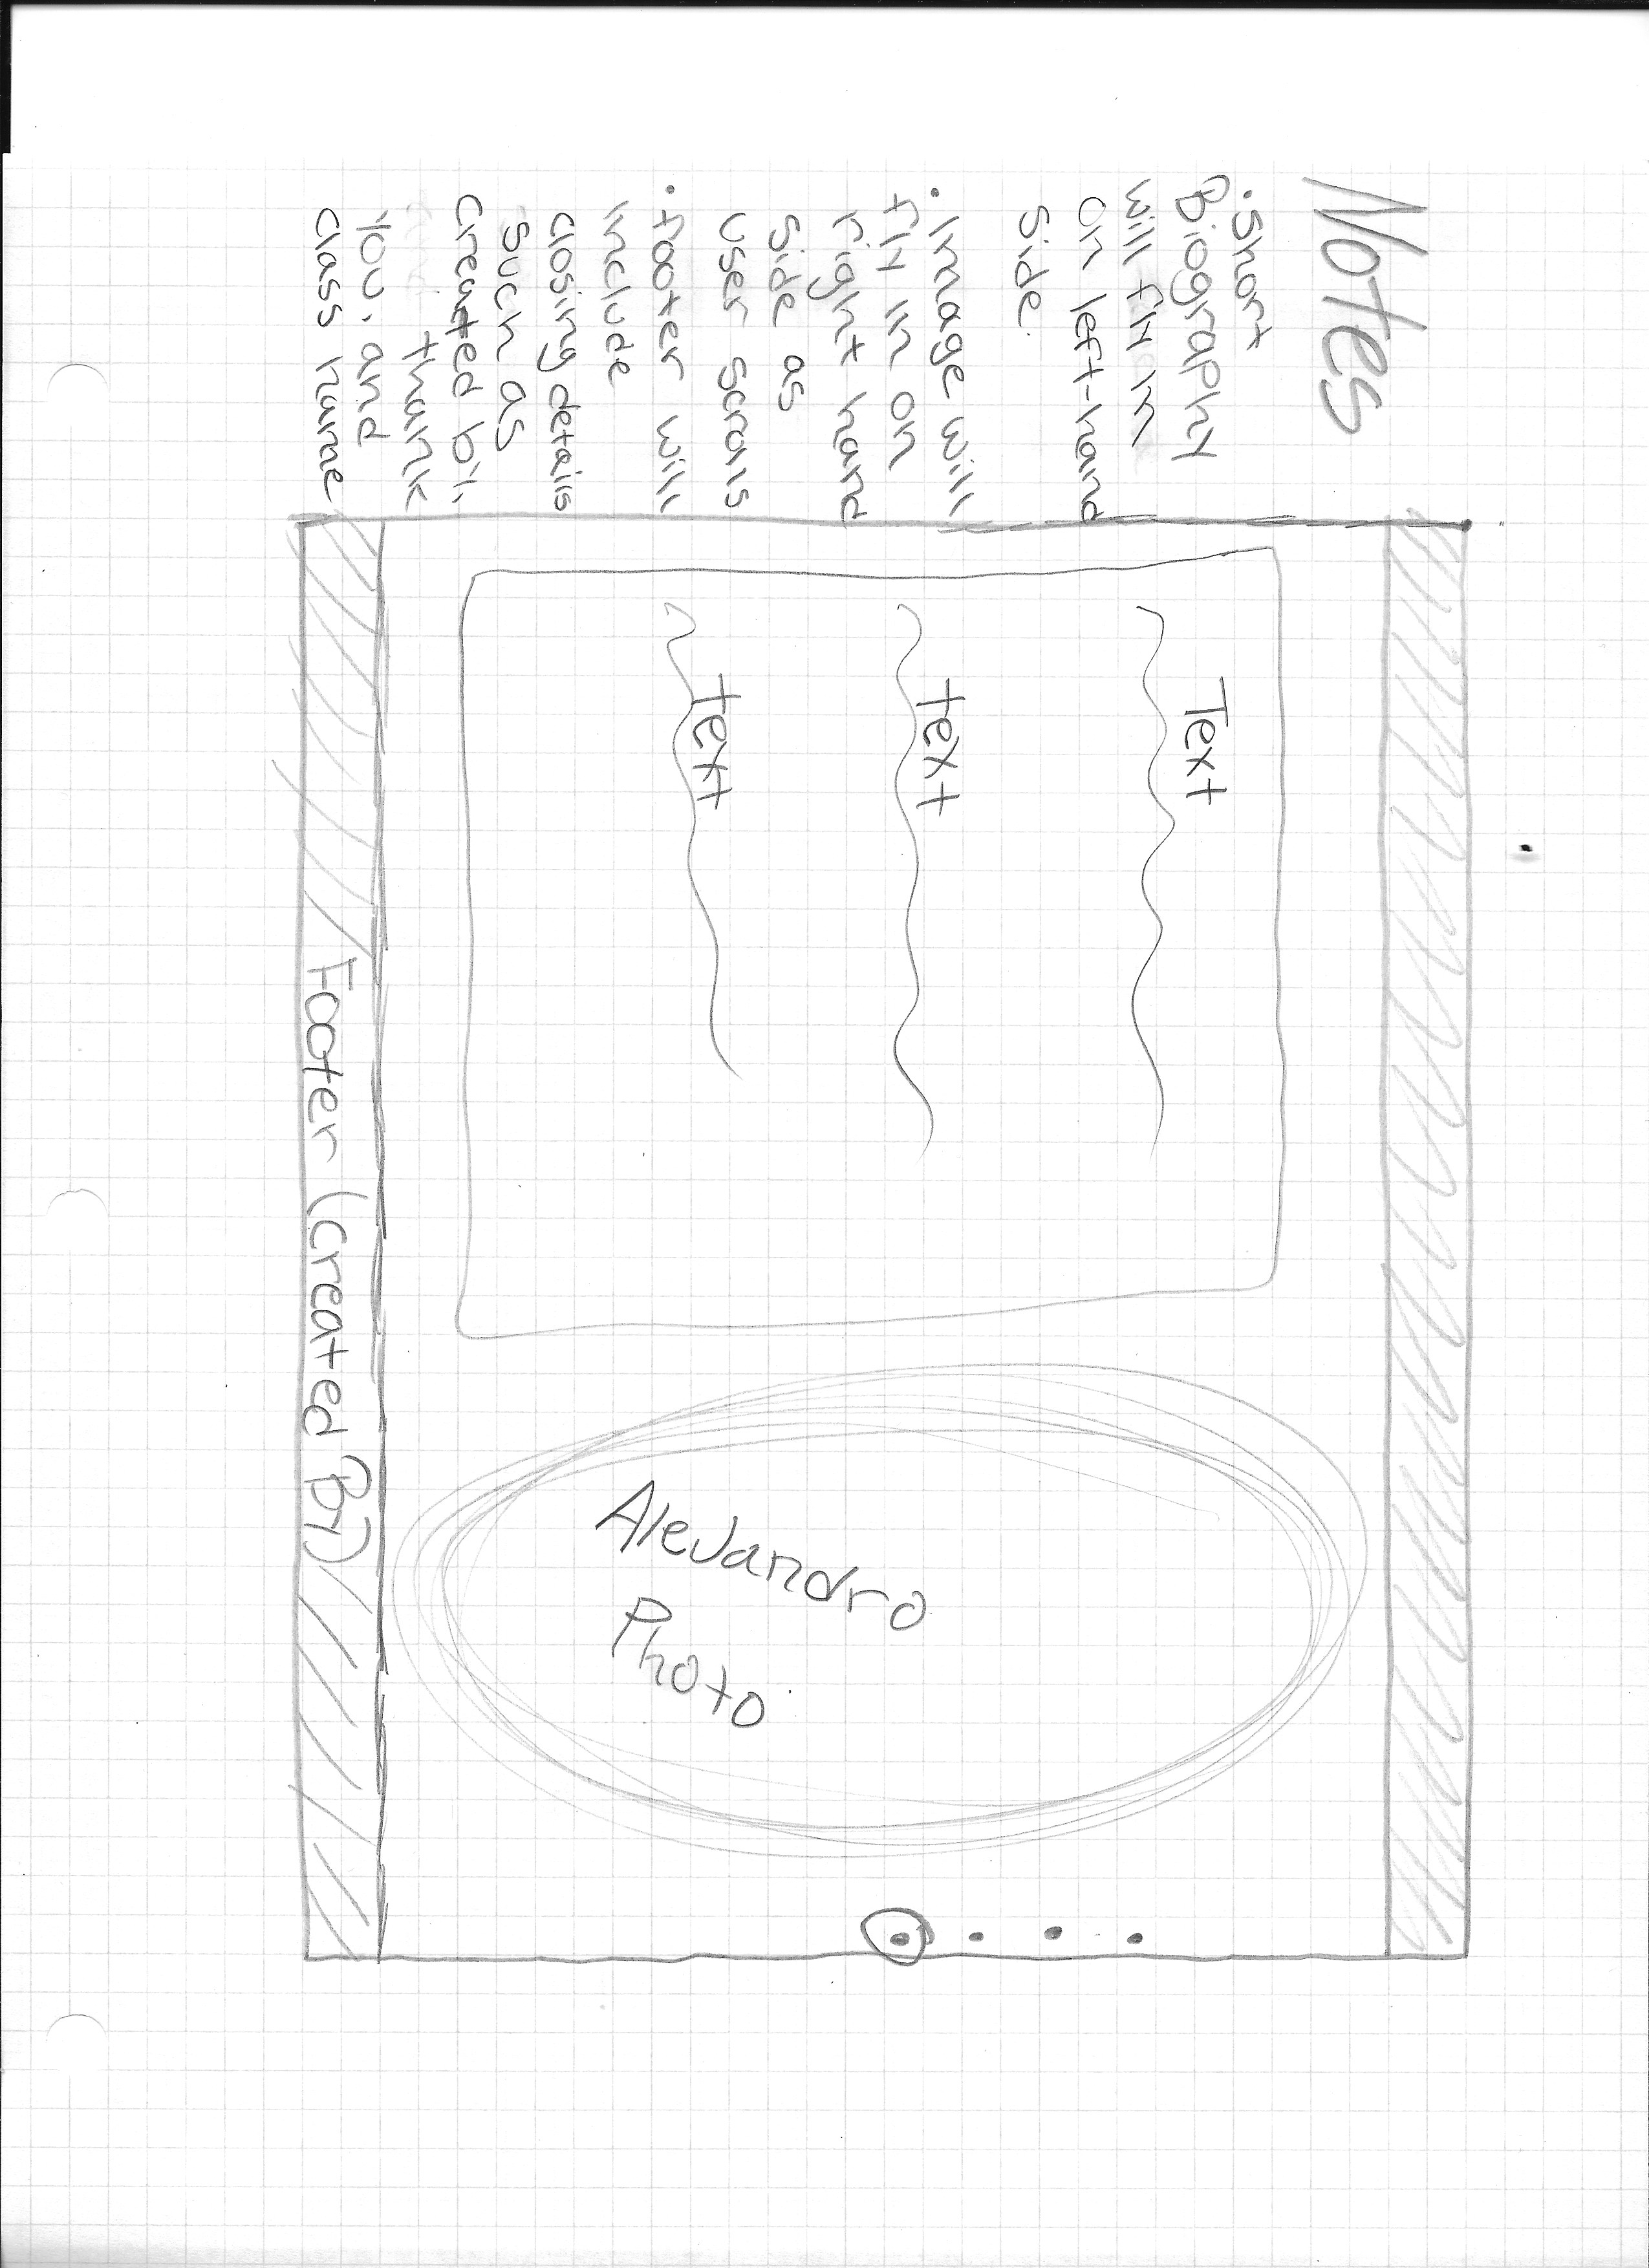 Notes
• Short
Biography
will fly in
on left-hand
Side.
• Image will
fly in on
right hand
side as
user scrolls
• footer will
include
closing details
such as
created by,
thank
you, and
class name
Text
text
text
Alejandro
Photo
Footer (created By)